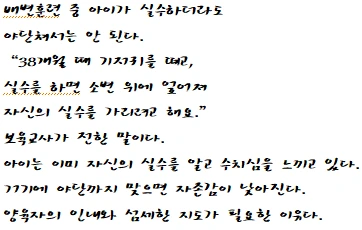 배변훈련 중 아이가 실수하더라도
야단쳐서는 안 된다.
“38개월 때 기저귀를 떼고,
실수를 하면 소변 위에 엎어져
자신의 실수를 가리려고 해요.”
보육교사가 전한 말이다.
아이는 이미 자신의 실수를 알고 수치심을 느끼고 있다.
거기에 야단까지 맞으면 자존감이 낮아진다.
양육자의 인내와 섬세한 지도가 필요한 이유다.